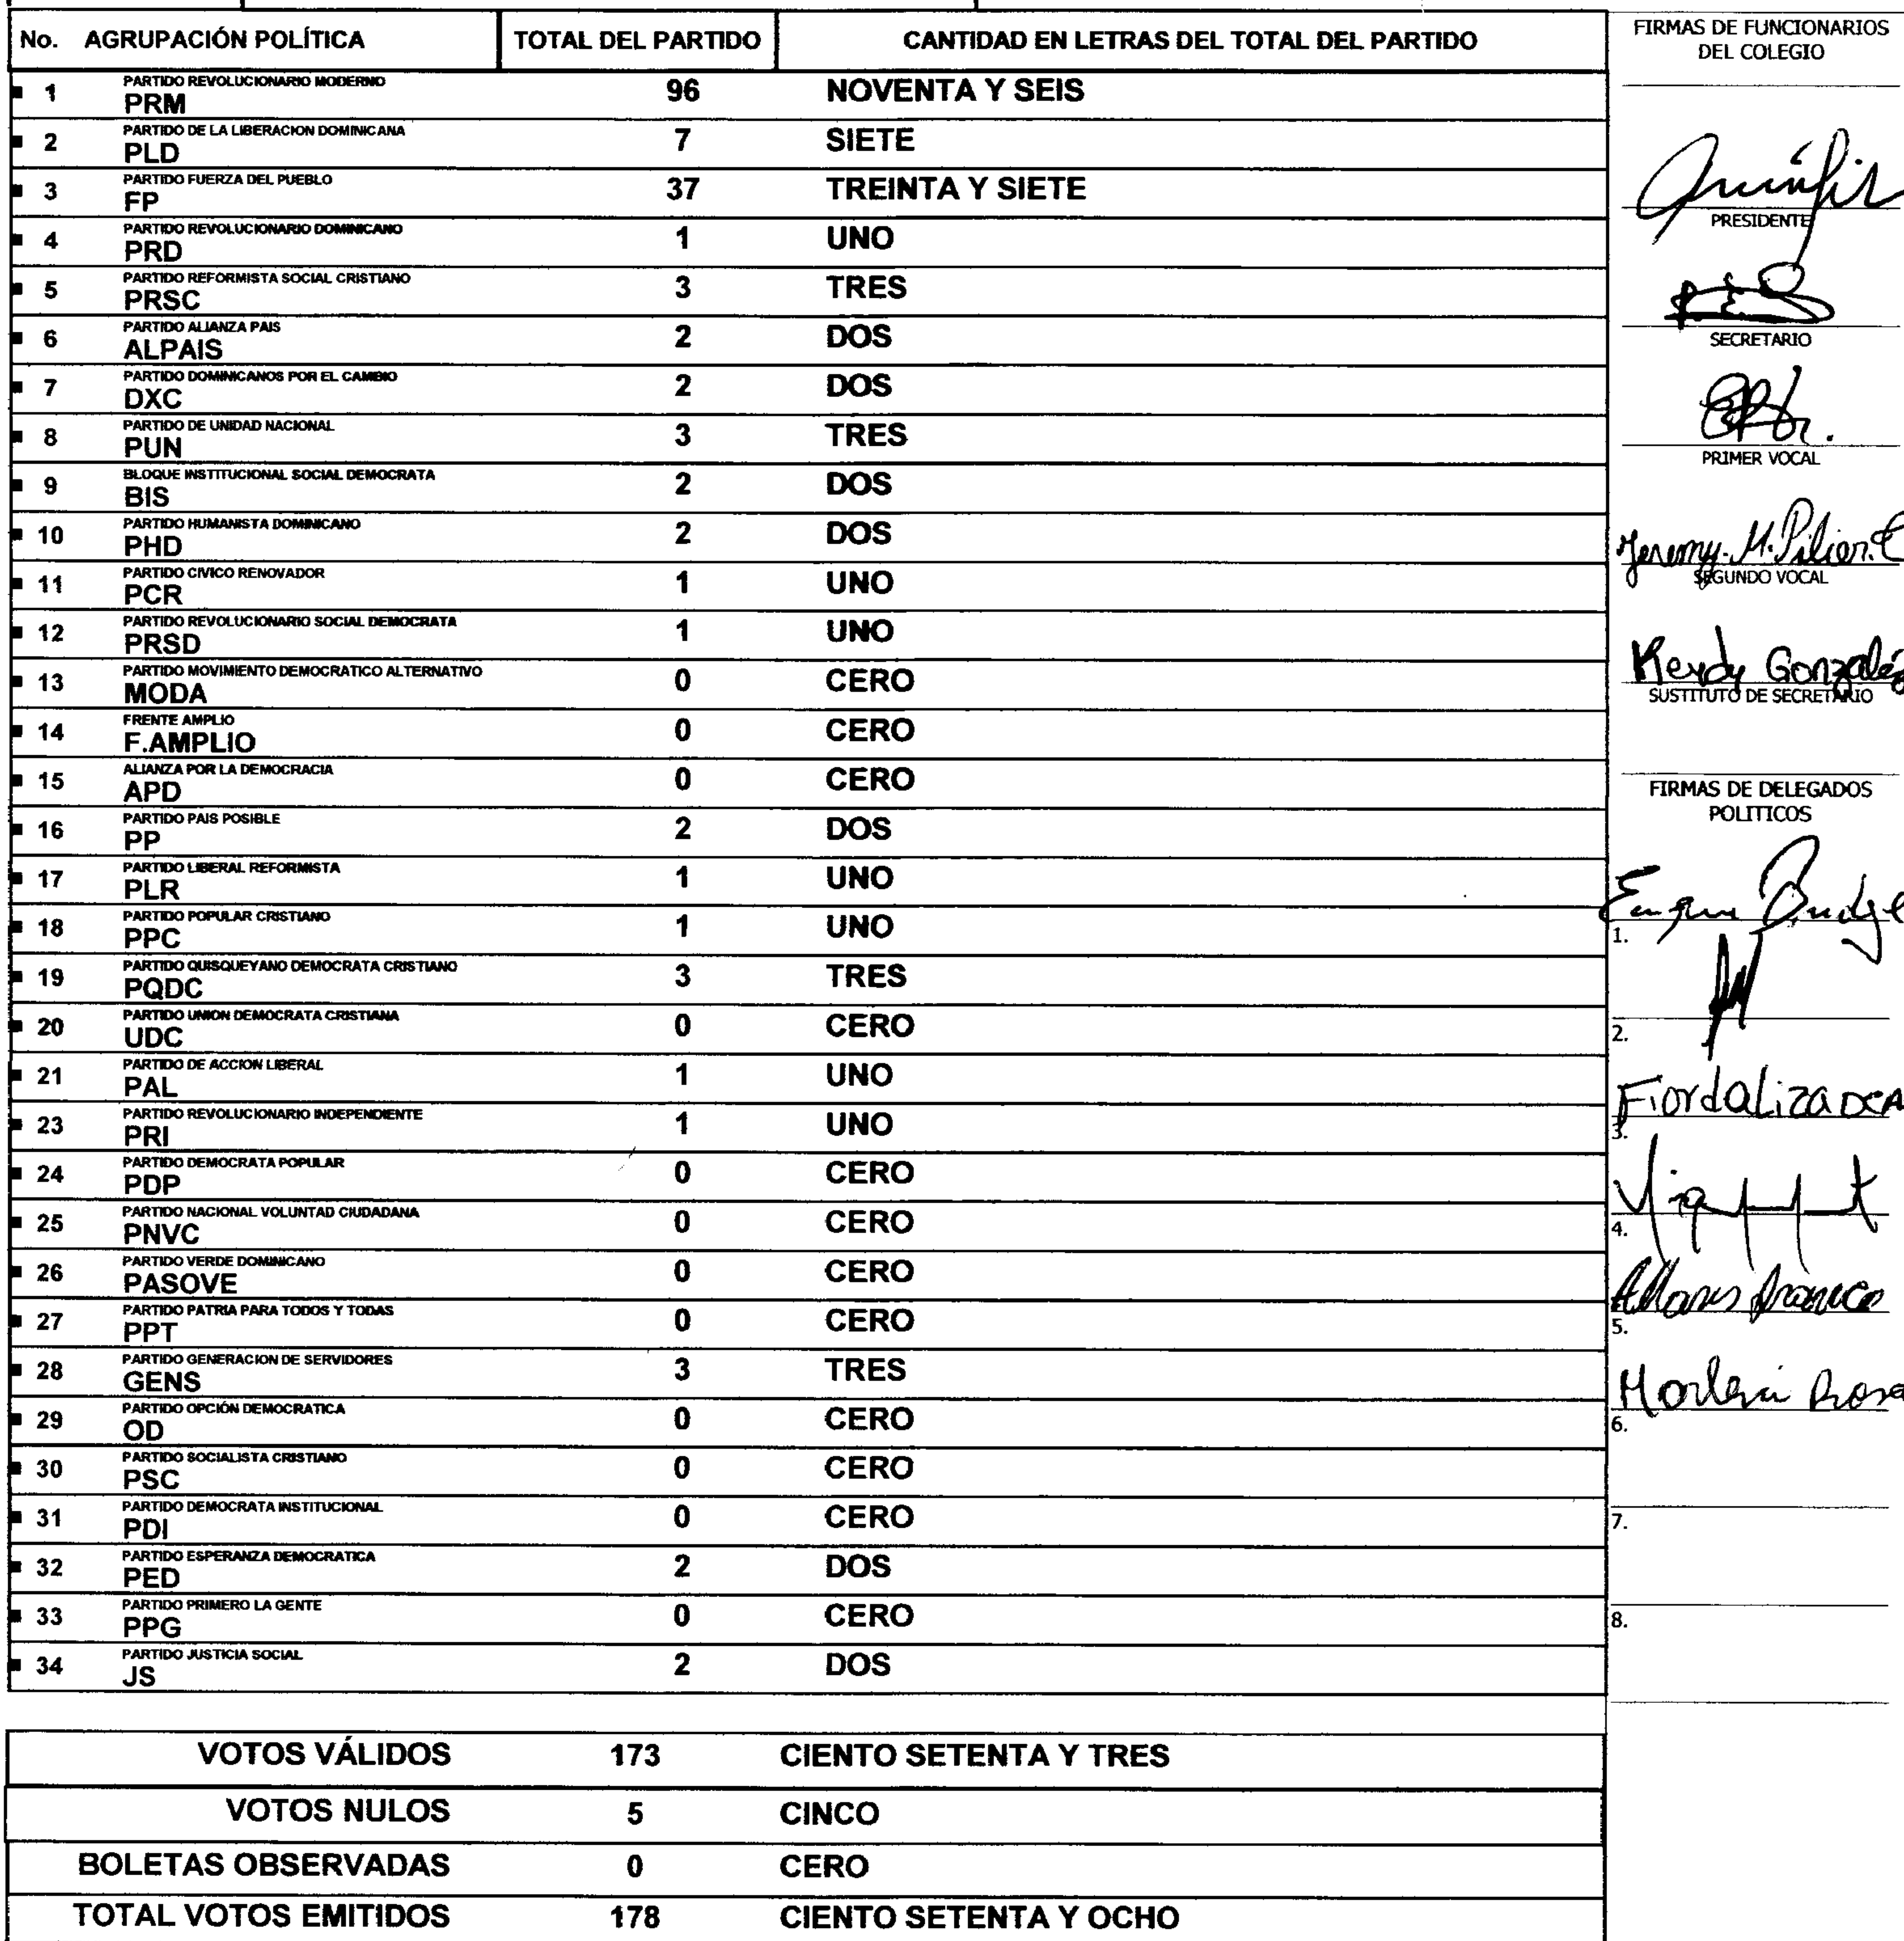 No. AGRUPACIÓN POLÍTICA TOTAL DEL PARTIDO CANTIDAD EN LETRAS DEL TOTAL DEL PARTIDO
PARTIDO REVOLUCIONARIO MODERNO
1 PRM 96 NOVENTA Y SEIS
PARTIDO DE LA LIBERACION DOMINICANA
2 PLD 7 SIETE
PARTIDO FUERZA DEL PUEBLO
3 FP 37 TREINTA Y SIETE
PARTIDO REVOLUCIONARIO DOMINICANO
4 PRD 1 UNO
PARTIDO REFORMISTA SOCIAL CRISTIANO
5 PRSC 3 TRES
PARTIDO ALIANZA PAIS
6 ALPAIS 2 DOS
PARTIDO DOMINICANOS POR EL CAMBIO
7 DXC 2 DOS
PARTIDO DE UNIDAD NACIONAL
8 PUN 3 TRES
BLOQUE INSTITUCIONAL SOCIAL DEMOCRATA
9 BIS 2 DOS
PARTIDO HUMANISTA DOMINICANO
10 PHD 2 DOS
PARTIDO CIVICO RENOVADOR
11 PCR 1 UNO
PARTIDO REVOLUCIONARIO SOCIAL DEMOCRATA
12 PRSD 1 UNO
PARTIDO MOVIMIENTO DEMOCRATICO ALTERNATIVO
13 MODA 0 CERO
FRENTE AMPLIO
14 F.AMPLIO 0 CERO
ALIANZA POR LA DEMOCRACIA
15 APD 0 CERO
PARTIDO PAIS POSIBLE
16 PP 2 DOS
PARTIDO LIBERAL REFORMISTA
17 PLR 1 UNO
PARTIDO POPULAR CRISTIANO
18 PPC 1 UNO
PARTIDO QUISQUEYANO DEMOCRATA CRISTIANO
19 PQDC 3 TRES
PARTIDO UNION DEMOCRATA CRISTIANA
20 UDC 0 CERO
PARTIDO DE ACCION LIBERAL
21 PAL 1 UNO
PARTIDO REVOLUCIONARIO INDEPENDIENTE
23 PRI 1 UNO
PARTIDO DEMOCRATA POPULAR
24 PDP 0 CERO
PARTIDO NACIONAL VOLUNTAD CIUDADANA
25 PNVC 0 CERO
PARTIDO VERDE DOMINICANO
26 PASOVE 0 CERO
PARTIDO PATRIA PARA TODOS Y TODAS
27 PPT 0 CERO
PARTIDO GENERACION DE SERVIDORES
28 GENS 3 TRES
PARTIDO OPCIÓN DEMOCRATICA
29 OD 0 CERO
PARTIDO SOCIALISTA CRISTIANO
30 PSC 0 CERO
PARTIDO DEMOCRATA INSTITUCIONAL
31 PDI 0 CERO
PARTIDO ESPERANZA DEMOCRATICA
32 PED 2 DOS
PARTIDO PRIMERO LA GENTE
33 PPG 0 CERO
PARTIDO JUSTICIA SOCIAL
34 JS 2 DOS
VOTOS VÁLIDOS 173 CIENTO SETENTA Y TRES
VOTOS NULOS 5 CINCO
BOLETAS OBSERVADAS 0 CERO
TOTAL VOTOS EMITIDOS 178 CIENTO SETENTA Y OCHO
FIRMAS DE FUNCIONARIOS
DEL COLEGIO
PRESIDENTE
SECRETARIO
PRIMER VOCAL
Jeremy. M. Pilier. C
SEGUNDO VOCAL
Kerdy González
SUSTITUTO DE SECRETARIO
FIRMAS DE DELEGADOS
POLITICOS
1.
2.
Fiordaliza
3.
4.
5.
6.
7.
8.